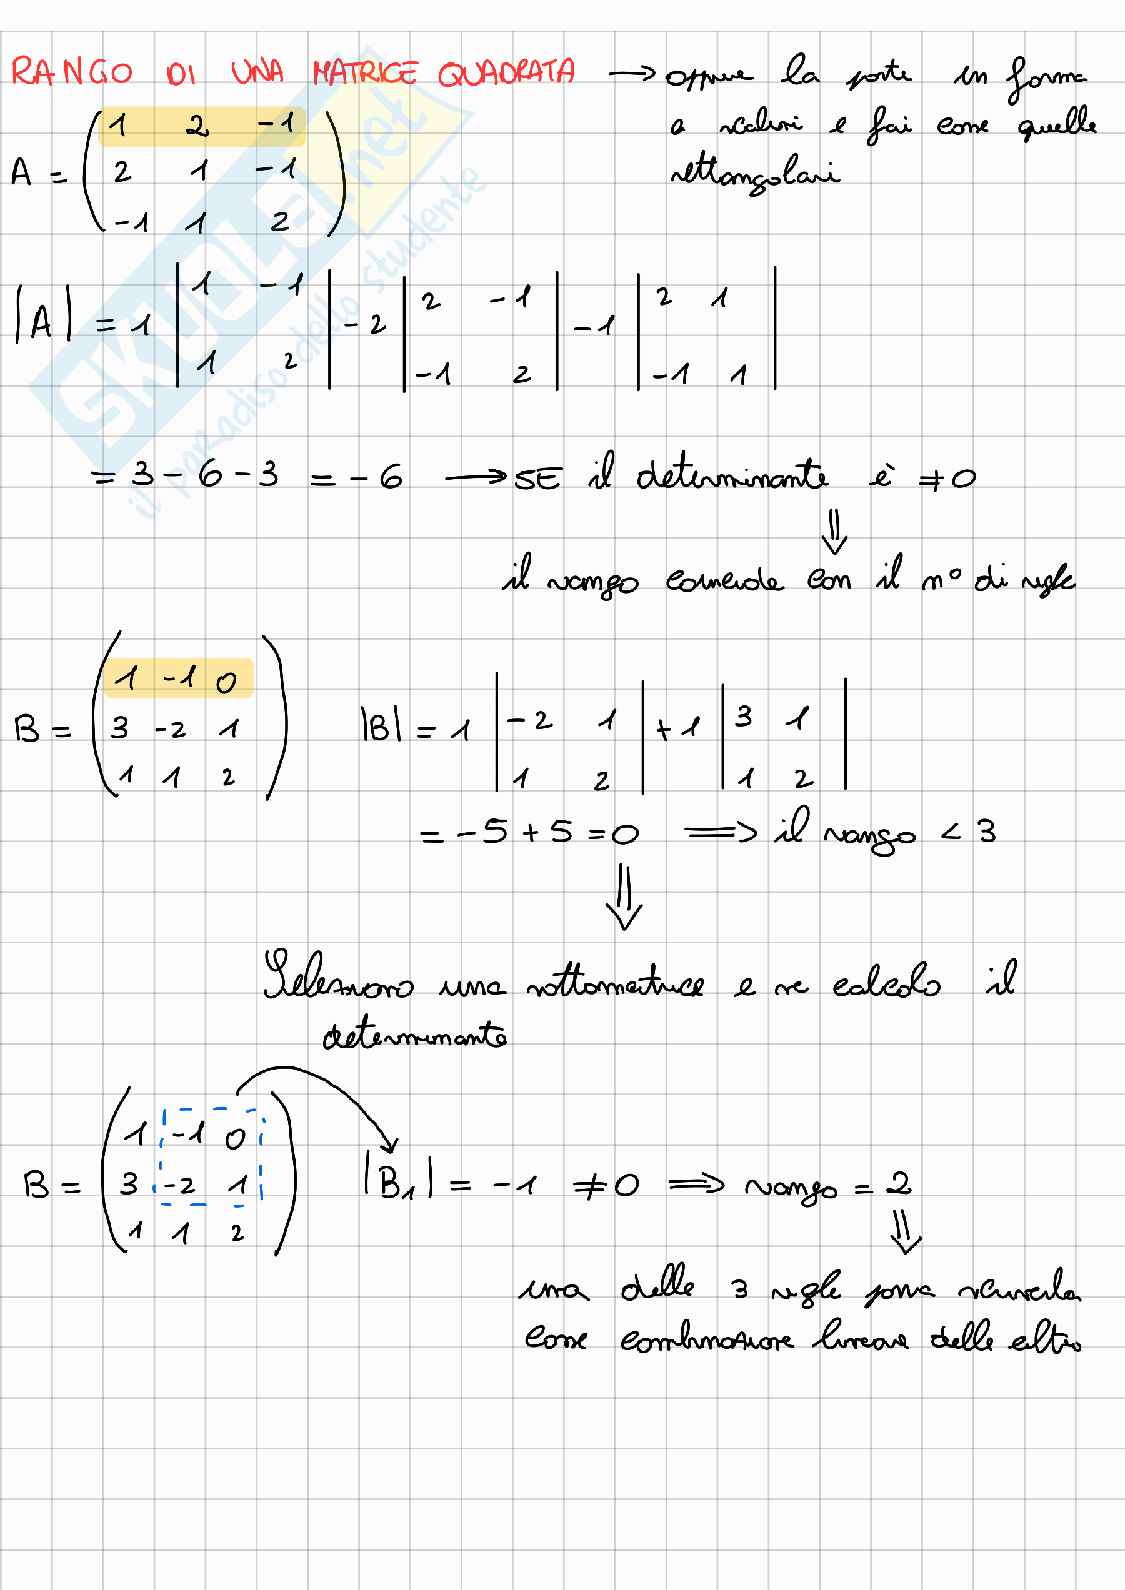 RANGO DI UNA MATRICE QUADRATA → oppure la porti in forma
a scalini e fai come quelle
rettangolari
A = ( 1 2 -1
2 1 -1
-1 1 2 )
|A| = 1 | 1 -1 | - 2 | 2 -1 | - 1 | 2 1 |
| 1 2 | | -1 2 | | -1 1 |
= 3 - 6 - 3 = - 6 → SE il determinante è ≠ 0
⇓
il rango coincide con il n° di righe
B = ( 1 -1 0
3 -2 1
1 1 2 )
|B| = 1 | -2 1 | + 1 | 3 1 |
| 1 2 | | 1 2 |
= - 5 + 5 = 0 ⇒ il rango < 3
⇓
Seleziono una sottomatrice e ne calcolo il
determinante
B = ( 1 -1 0
3 -2 1
1 1 2 )
|B₁| = - 1 ≠ 0 ⇒ rango = 2
⇓
una delle 3 righe posso scriverla
come combinazione lineare delle altre
SKUOLA.net
il paradiso dello studente